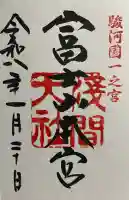 駿河國一之宮
富士本宮
淺間
大社
令和八年一月二十日